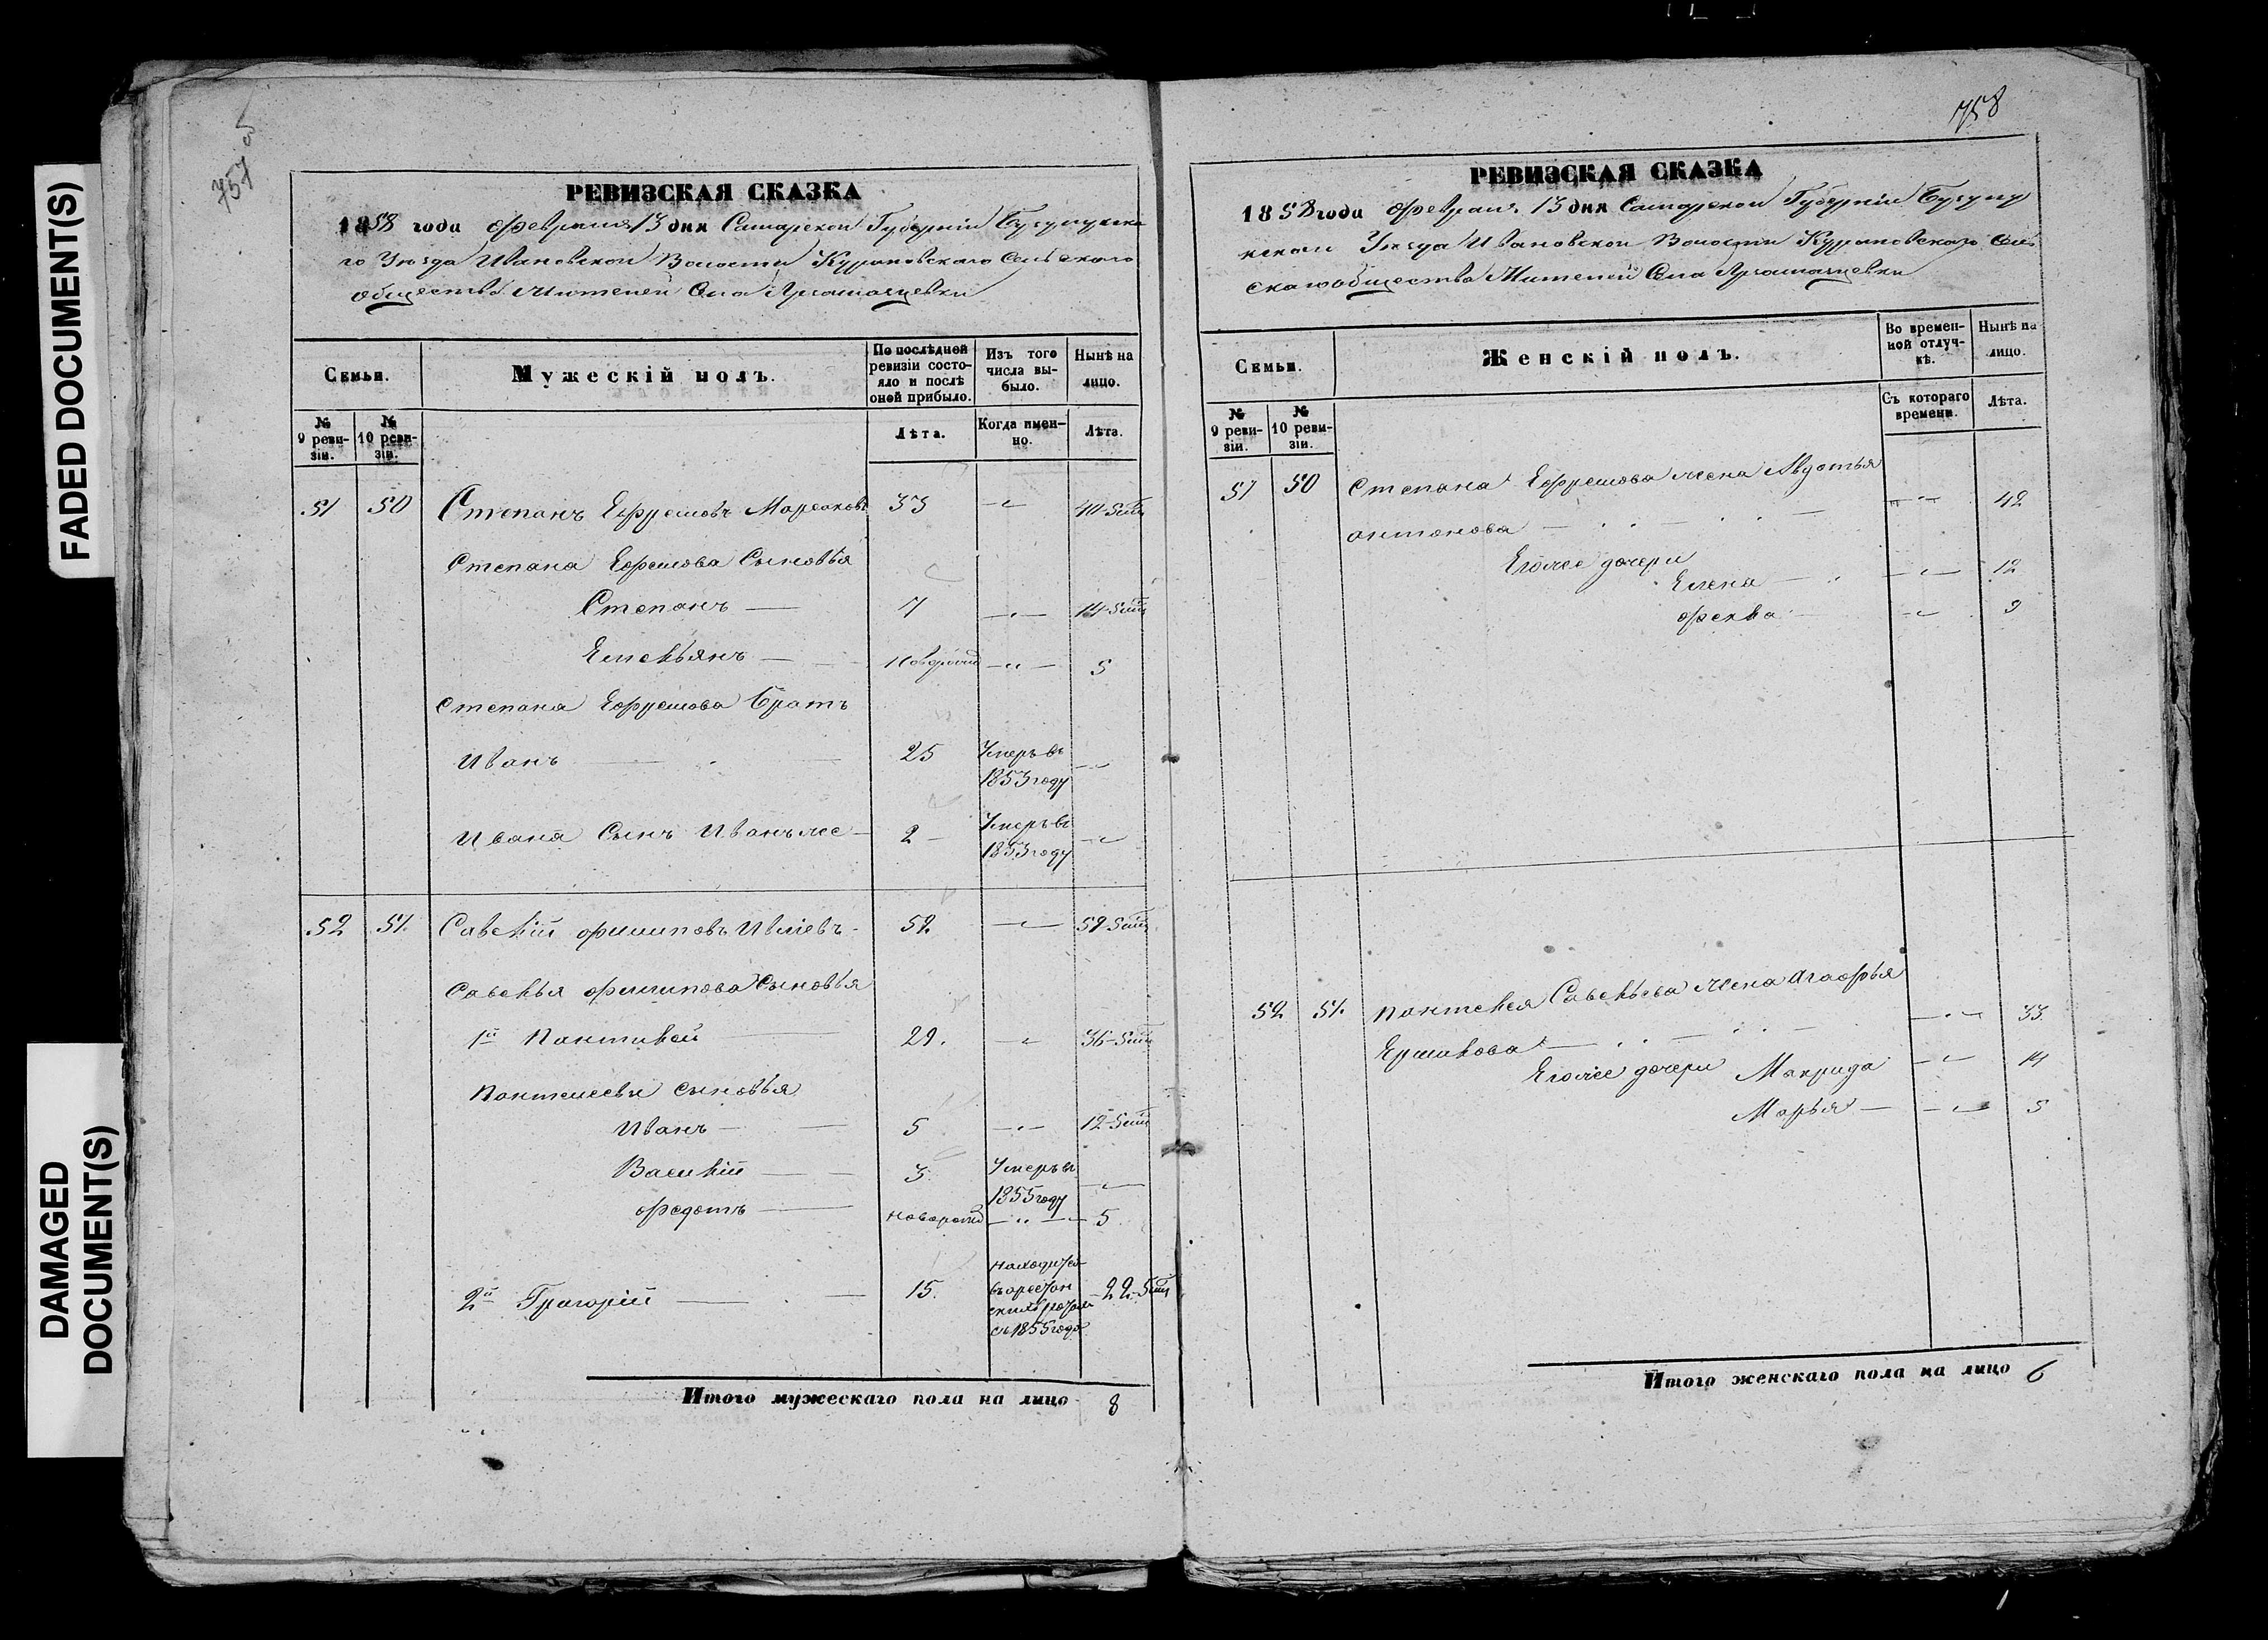 FADED DOCUMENT(S)
DAMAGED
DOCUMENT(S)
757
РЕВИЗСКАЯ СКАЗКА
1858 года Февраля 13 дня Самарской Губерніи Бугурусланска
го Уѣзда Ивановской Волости Сельскаго
общества Жителей Села
Семьи.
Мужескій полъ.
По послѣдней ревизіи состояло и послѣ оной прибыло.
Изъ того числа выбыло.
Нынѣ на лицо.
№ 9 ревизіи.
№ 10 ревизіи.
Лѣта.
Когда именно.
Лѣта.
51 50 Степанъ Ефремовъ 33 40-5 мѣ
Степана Ефремова Сыновья
Степанъ 7 14-5 мѣ
Емельянъ новорожд 5
Степана Ефремова Братъ
Иванъ 25 Умеръ въ
1853 году
Ивана Сынъ Иванъ же 2 Умеръ въ
1853 году
52 51 Савелій Филиповъ Ивлевъ 52 59-5 мѣ
Савелья Филипова Сыновья
1й Пантилей 29. 36-5 мѣ
Пантелеевы сыновья
Иванъ 5 12-5 мѣ
Василій 3 Умеръ въ
1855 году
Федотъ новорожд 5
2й Григорій 15. находится
въ арестан
скихъ ротахъ
съ 1855 года 22-5 мѣ
Итого мужескаго пола на лицо 8
758
РЕВИЗСКАЯ СКАЗКА
1858 года Февраля 13 дня Самарской Губерніи Бугуру
Уѣзда Ивановской Волости Сель
скаго общества Жителей Села
Семьи.
Женскій полъ.
Во временной отлучкѣ.
Нынѣ на лицо.
№ 9 ревизіи.
№ 10 ревизіи.
Съ котораго времени.
Лѣта.
51 50 Степана Ефремова жена Авдотья
Антонова 42
Его же дочери
Елена 12
Фекла 9
52 51. Пантелея Савельева жена Агафья
Ермакова 33
Его же дочери Макрида 14
Марья 5
Итого женскаго пола на лицо 6